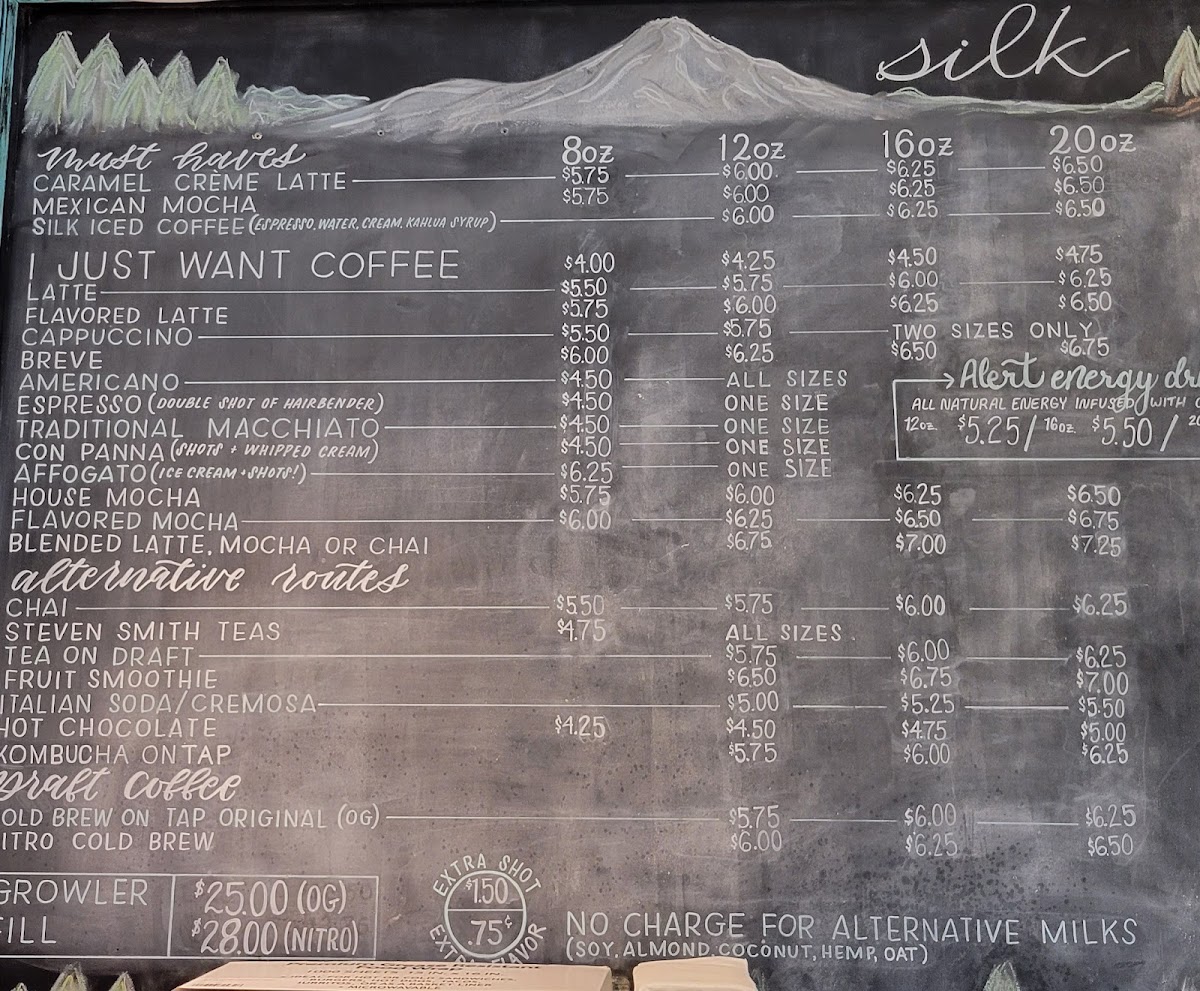 silk
must haves 8oz 12oz 16oz 20oz
CARAMEL CRÈME LATTE $5.75 $6.00 $6.25 $6.50
MEXICAN MOCHA $5.75 $6.00 $6.25 $6.50
SILK ICED COFFEE (ESPRESSO, WATER, CREAM, KAHLUA SYRUP) $6.00 $6.25 $6.50
I JUST WANT COFFEE $4.00 $4.25 $4.50 $4.75
LATTE $5.50 $5.75 $6.00 $6.25
FLAVORED LATTE $5.75 $6.00 $6.25 $6.50
CAPPUCCINO $5.50 $5.75 TWO SIZES ONLY
BREVE $6.00 $6.25 $6.50 $6.75
AMERICANO $4.50 ALL SIZES
ESPRESSO (DOUBLE SHOT OF HAIRBENDER) $4.50 ONE SIZE
TRADITIONAL MACCHIATO $4.50 ONE SIZE
CON PANNA (SHOTS + WHIPPED CREAM) $4.50 ONE SIZE
AFFOGATO (ICE CREAM + SHOTS!) $6.25 ONE SIZE
Alert energy dr
ALL NATURAL ENERGY INFUSED WITH
12oz. $5.25 / 16oz. $5.50 / 20
HOUSE MOCHA $5.75 $6.00 $6.25 $6.50
FLAVORED MOCHA $6.00 $6.25 $6.50 $6.75
BLENDED LATTE, MOCHA OR CHAI $6.75 $7.00 $7.25
alternative routes
CHAI $5.50 $5.75 $6.00 $6.25
STEVEN SMITH TEAS $4.75 ALL SIZES.
TEA ON DRAFT $5.75 $6.00 $6.25
FRUIT SMOOTHIE $6.50 $6.75 $7.00
ITALIAN SODA/CREMOSA $5.00 $5.25 $5.50
HOT CHOCOLATE $4.25 $4.50 $4.75 $5.00
KOMBUCHA ON TAP $5.75 $6.00 $6.25
Draft Coffee
OLD BREW ON TAP ORIGINAL (OG) $5.75 $6.00 $6.25
ITRO COLD BREW $6.00 $6.25 $6.50
GROWLER $25.00 (OG)
FILL $28.00 (NITRO)
EXTRA SHOT
$1.50
.75¢
EXTRA FLAVOR
NO CHARGE FOR ALTERNATIVE MILKS
(SOY, ALMOND, COCONUT, HEMP, OAT)